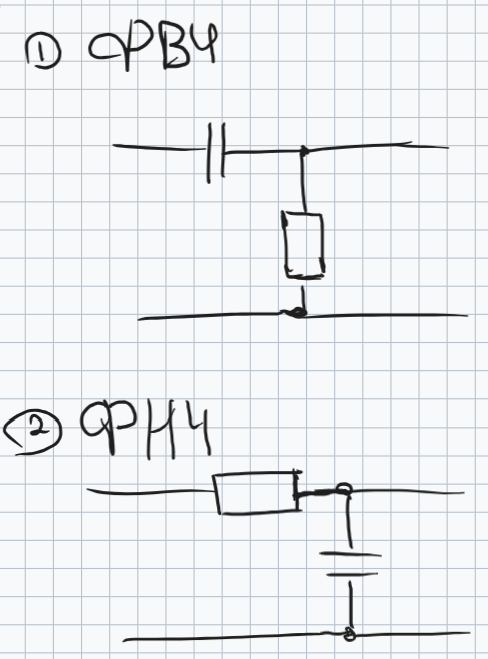 ① ФВЧ
② ФНЧ